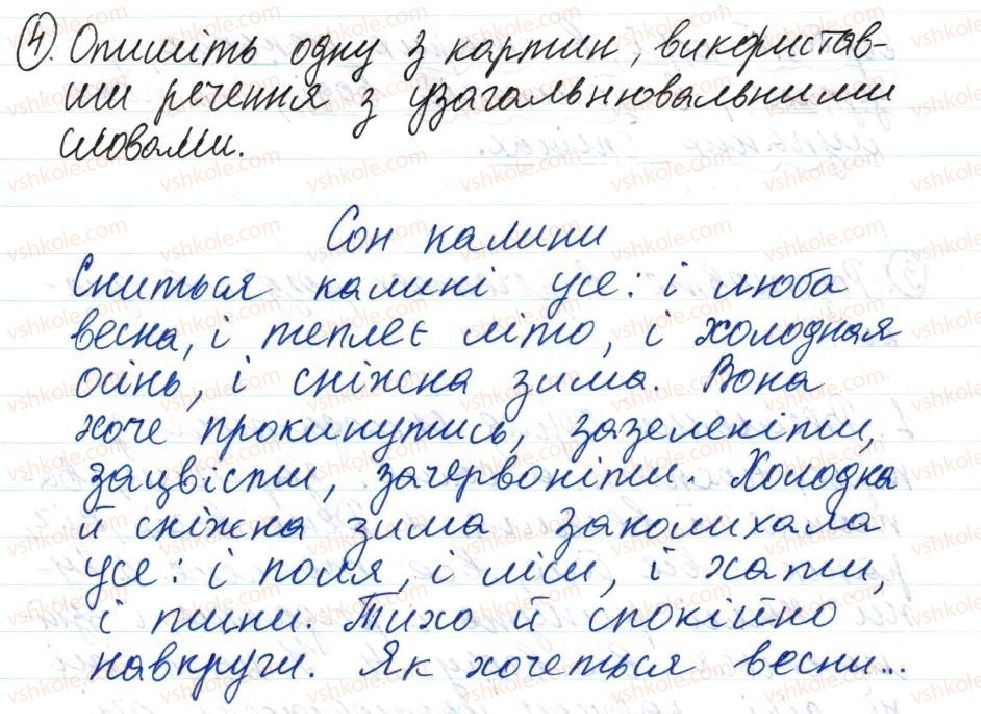 4. Опишіть одну з картин, використав-
ши речення з узагальнювальними
словами.
Сон калини
Сниться калині усе: і люба
весна, і теплеє літо, і холодная
осінь, і сніжна зима. Вона
хоче прокинутись, зазеленіти,
зацвісти, зачервоніти. Холодна
й сніжна зима заколихала
усе: і поля, і ліси, і хати,
і пташи. Тихо й спокійно
навкруги. Як хочеться весни...